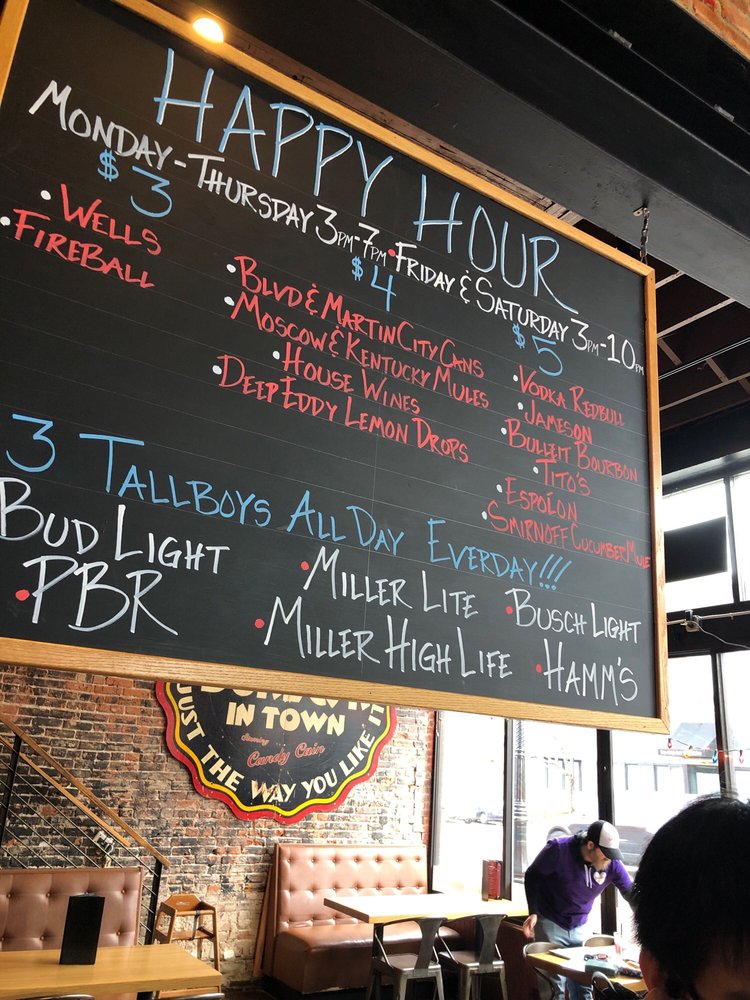 HAPPY HOUR
MONDAY-THURSDAY 3PM-7PM • FRIDAY & SATURDAY 3PM-10PM
$3
• WELLS
• FIREBALL
$4
• BLVD & MARTIN CITY CANS
• MOSCOW & KENTUCKY MULES
• HOUSE WINES
• DEEP EDDY LEMON DROPS
$5
• VODKA REDBULL
• JAMESON
• BULLEIT BOURBON
• TITO'S
• ESPOLON
• SMIRNOFF CUCUMBER MULE
3 TALLBOYS ALL DAY EVERDAY!!!
BUD LIGHT
• PBR
• MILLER LITE
• MILLER HIGH LIFE
• BUSCH LIGHT
• HAMM'S
IN TOWN
Candy Cain
JUST THE WAY YOU LIKE IT